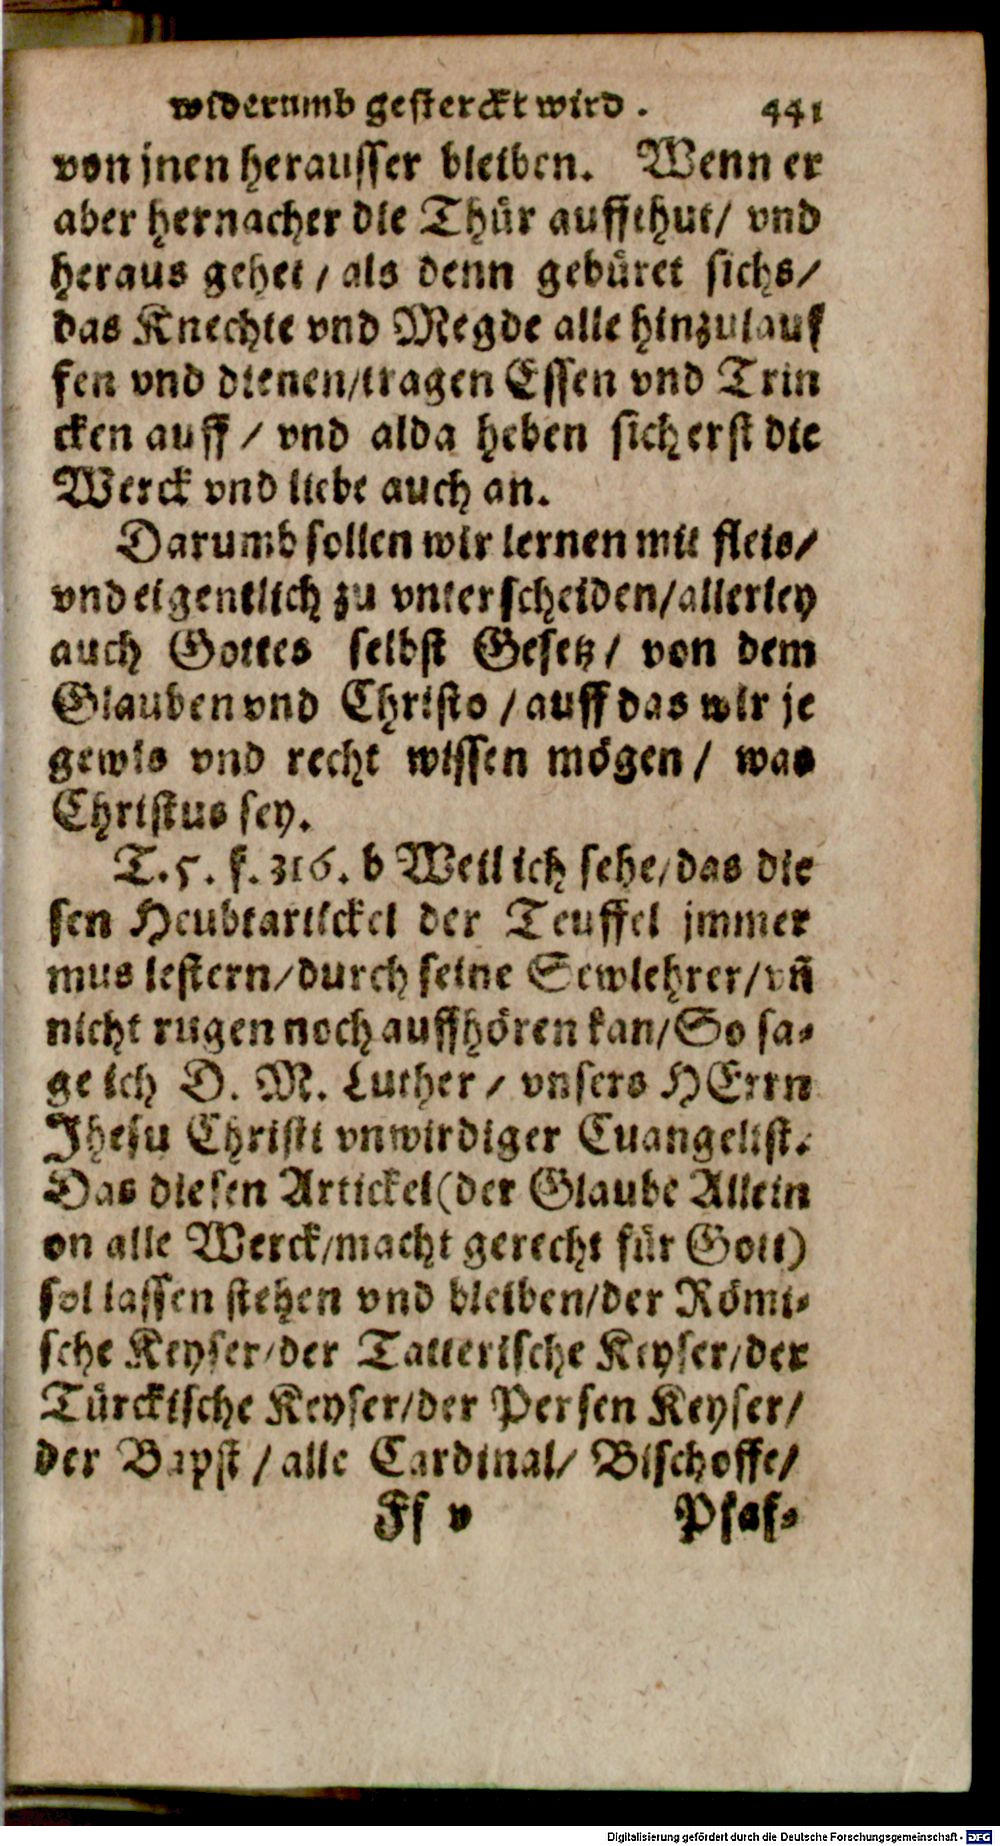 widerumb gesterckt wird. 441
von jnen herausser bleiben. Wenn er
aber hernacher die Thür auffthut/ vnd
heraus gehet/ als denn gebüret sichs/
das Knechte vnd Megde alle hinzulauf
fen vnd dienen/tragen Essen vnd Trin
cken auff/ vnd alda heben sich erst die
Werck vnd liebe auch an.
Darumb sollen wir lernen mit fleis/
vnd eigentlich zu vnterscheiden/allerley
auch Gottes selbst Gesetz/ von dem
Glauben vnd Christo/auff das wir je
gewis vnd recht wissen mögen/ was
Christus sey.
T.5. f.316. b Weil ich sehe/das die
sen Heubtartickel der Teuffel jmmer
mus lestern/durch seine Sewlehrer/vñ
nicht rugen noch auffhören kan/So sa-
ge ich D. M. Luther/ vnsers HErrn
Jhesu Christi vnwirdiger Euangelist.
Das diesen Artickel(der Glaube Allein
on alle Werck/macht gerecht für Gott)
sol lassen stehen vnd bleiben/der Römi-
sche Keyser/der Tatterische Keyser/der
Türckische Keyser/der Persen Keyser/
der Bapst/alle Cardinal/ Bischoffe/
Ff v Pfaf-
Digitalisierung gefördert durch die Deutsche Forschungsgemeinschaft - DFG